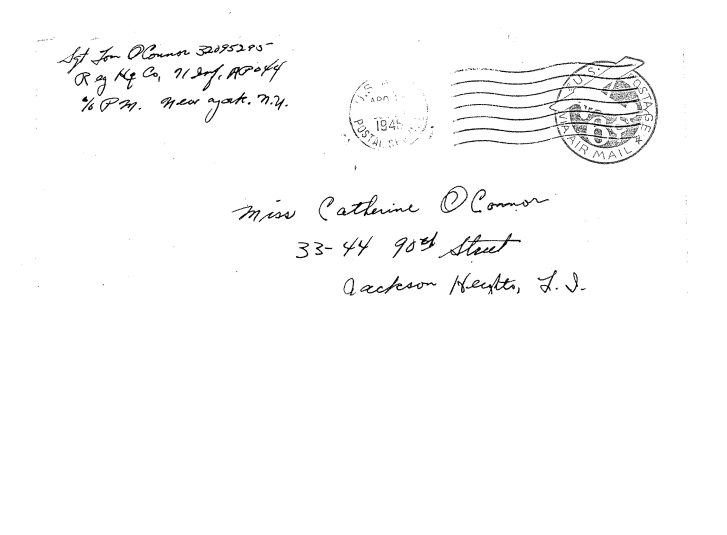 Sgt Tom O'Connor 32095295
Reg Hq Co, 71 Inf, APO 44
c/o P.M. New York. N.Y.
APO
1945
POSTAL
U.S. POSTAGE
VIA AIR MAIL
Miss Catherine O'Connor
33-44 90th Street
Jackson Heights, L.I.